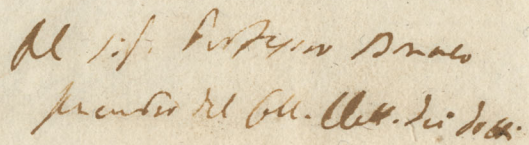 Al sig. Professor Bruneo
del Coll. Elett. dei dotti